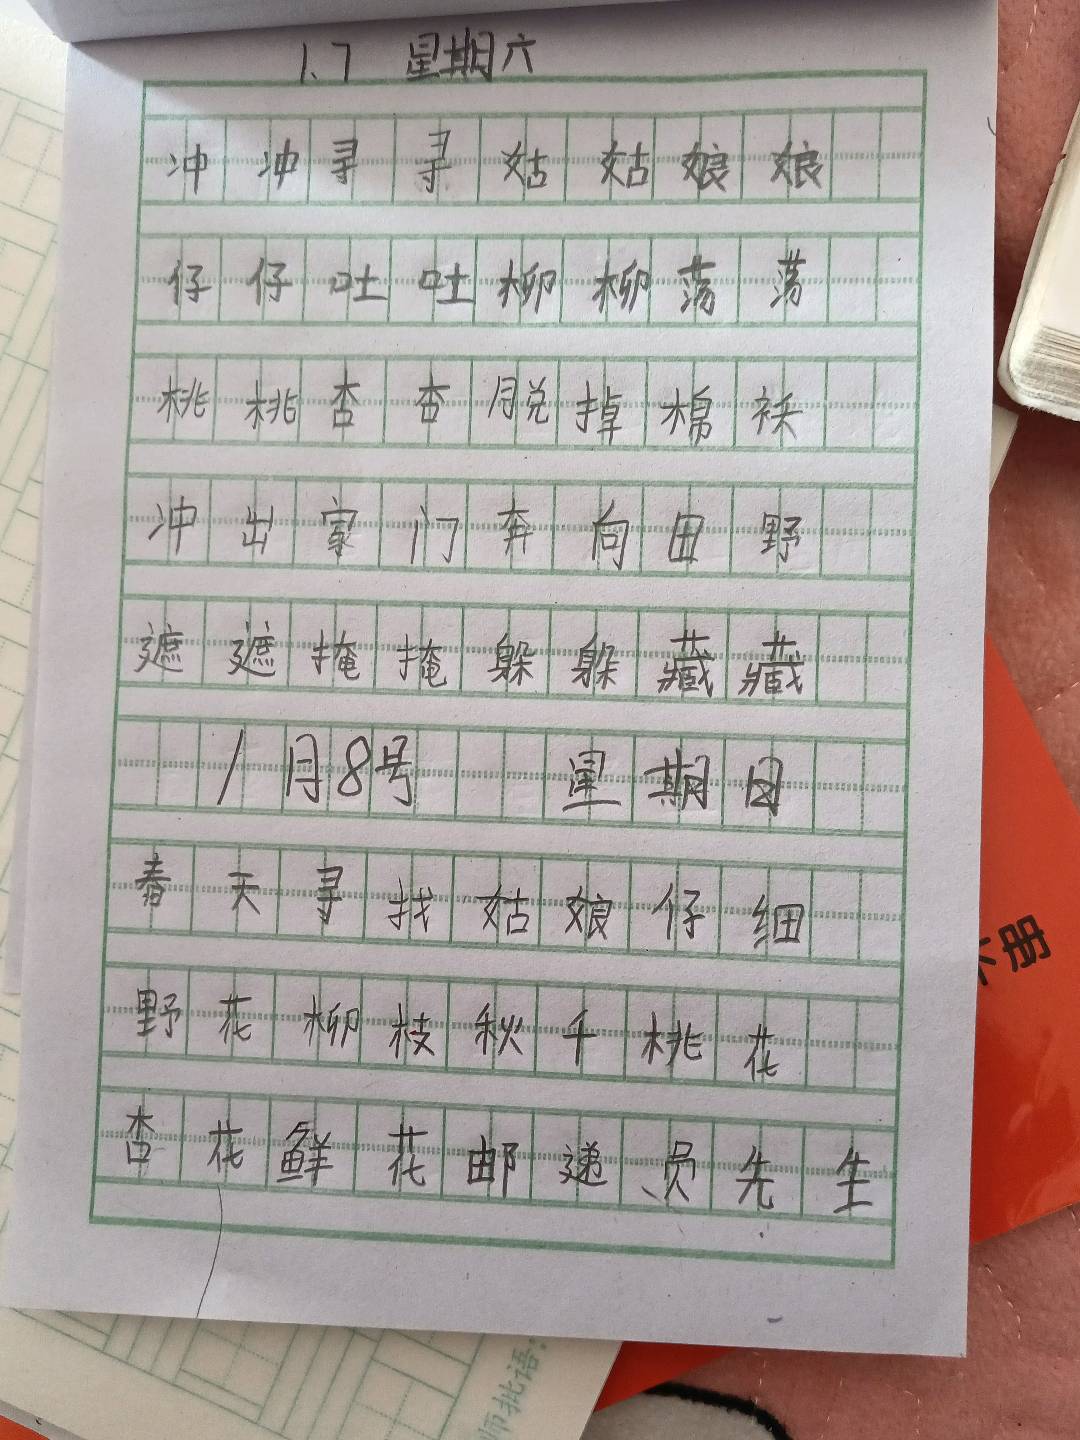 1.7 星期六
冲冲寻寻姑姑娘娘
仔仔吐吐柳柳荡荡
桃桃杏杏脱掉棉袄
冲出家门奔向田野
遮遮掩掩躲躲藏藏
1月8号 星期日
春天寻找姑娘仔细
野花柳枝秋千桃花
杏花鲜花邮递员先生
师批语: